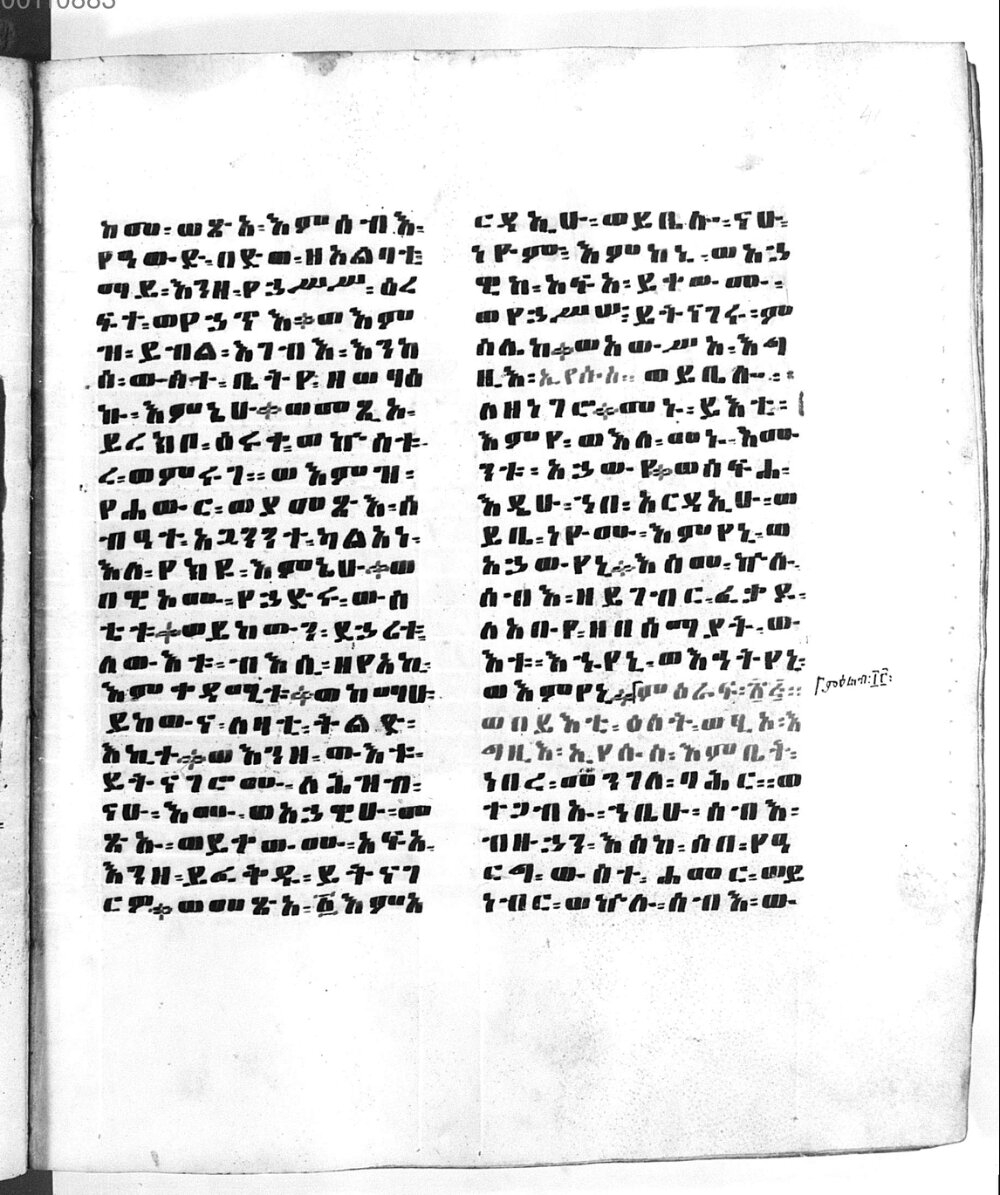 ከመ፡ወጽአ፡እምሰብእ፡
የዓውድ፡በድወ፡ዘአልቦቱ፡
ማይ፡እንዘ፡የኃሥሥ፡ዕረ
ፍተ፡ወየኃጥእ፨ወእም
ዝ፡ይብል፡እገብእ፡እንከ
ሰ፡ውስተ፡ቤትየ፡ዘወፃዕ
ኩ፡እምኔሁ፨ወመጺኦ፡
ይረክቦ፡ዕሩቀ፡ወኵስቱ
ረ፡ወምሩገ፡፡ወእምዝ፡
የሐውር፡ወያመጽእ፡ሰ
ብዓተ፡አጋንንተ፡ካልአነ፡
እለ፡የከዩ፡እምኔሁ፨ወ
በዊኦሙ፡የኃድሩ፡ውስ
ቴቱ፨ወይከውን፡ደኃሪቱ፡
ለውእቱ፡ብእሲ፡ዘየአኪ፡
እምቀዳሚቱ፨ወከማሁ፡
ይከውና፡ለዛቲ፡ትልድ፡
እኪት፨ወእንዘ፡ውእቱ፡
ይትናገሮሙ፡ለሕዝብ፡
ናሁ፡እሙ፡ወአኃዊሁ፡መ
ጽኡ፡ወይቀውሙ፡አፍአ፡
እንዘ፡ይፈትዱ፡ይትናገ
ርዎ፨ወመጽአ፡፩እምአ
ርዳኢሁ፡ወይቤሎ፡ናሁ፡
ነዮሙ፡እምከኒ፡ወአኃ
ዊከ፡አፍአ፡ይቀውሙ፡
ወየኃሥሡ፡ይትናገሩ፡ም
ስሌከ፨ወአውሥአ፡እግ
ዚእ፡ኢየሱስ፡፡ወይቤሎ፡
ለዘነገሮ፨መኑ፡ይእቲ፡
እምየ፡ወእለ፡መኑ፡እሙ
ንቱ፡አኃውየ፨ወሰፍሐ፡
እዲሁ፡ኀበ፡አርዳኢሁ፡ወ
ይቤ፡ነዮሙ፡እምየኒ፡ወ
አኃውየኒ፨እስመ፡ኵሉ፡
ሰብእ፡ዘይገብር፡ፈቃዶ፡
ለአቡየ፡ዘበሰማያት፡ው
እቱ፡እኁየኒ፡ወእኅትየኒ፡
ወእምየኒ፨ምዕራፍ፡
ምዕራብ፡፲፫፡
ወበይእቲ፡ዕለት፡ወፂኦ፡እ
ግዚእ፡ኢየሱስ፡እምቤት፡
ነበረ፡መንገለ፡ባሕር፡፡ወ
ተጋብኡ፡ኀቤሁ፡ሰብእ፡
ብዙኃን፡እስከ፡ሶበ፡የዓ
ርግ፡ውስተ፡ሐመር፡ወይ
ነብር፡ወኵሉ፡ሰብእ፡ው